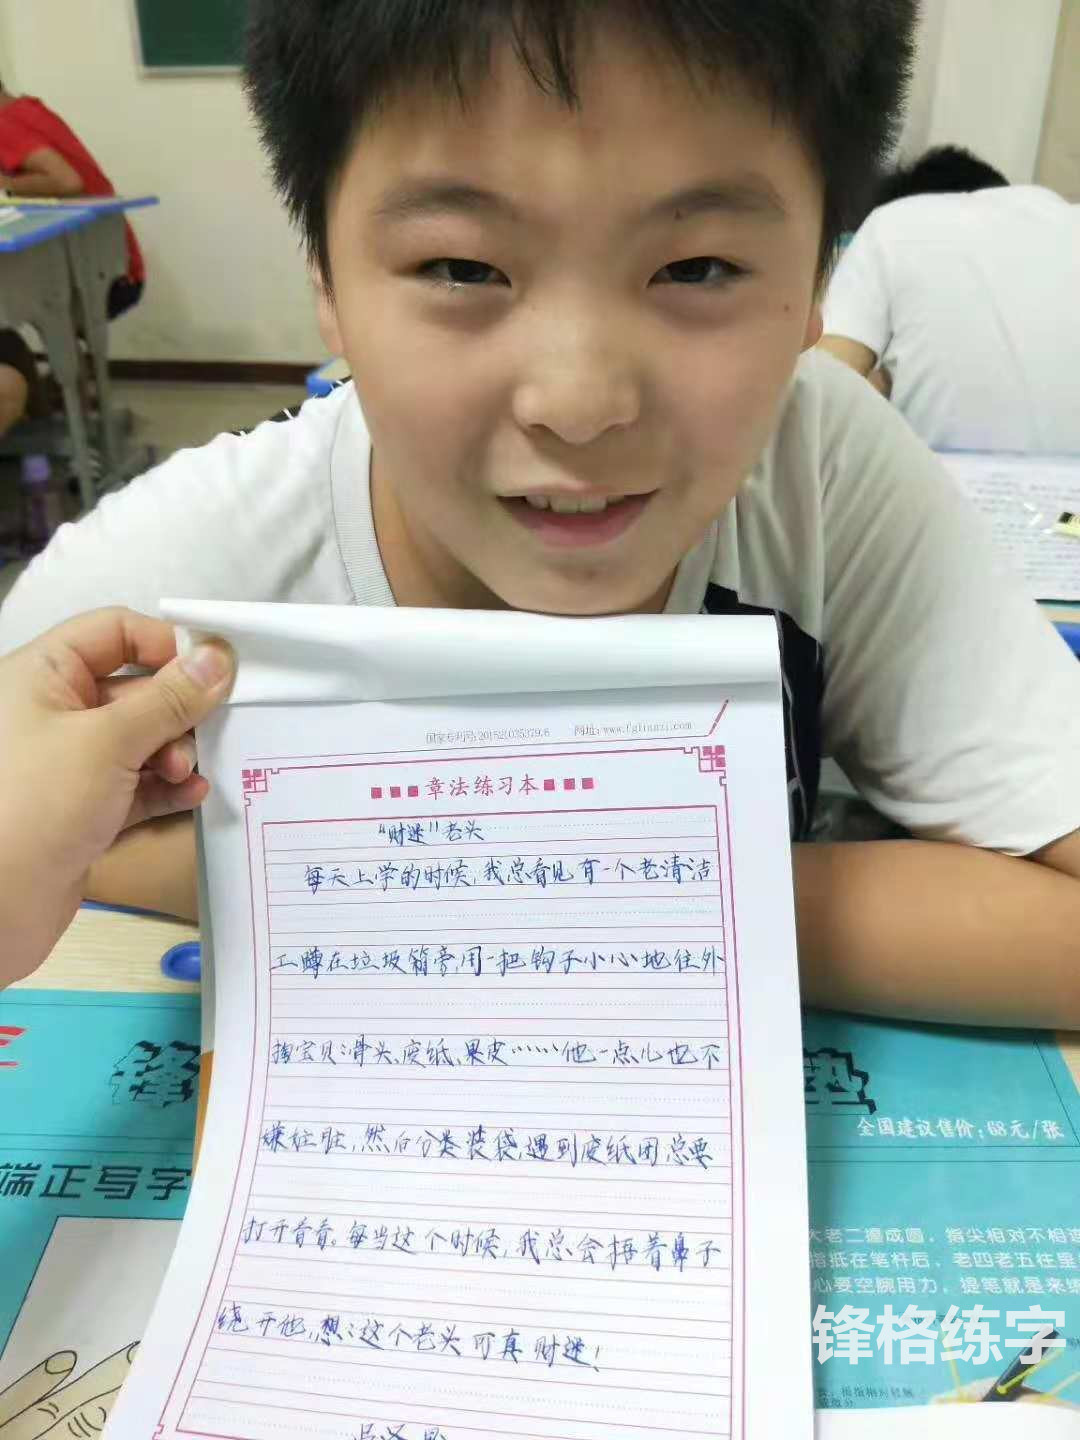 国家专利号:201521035379.6 网址:www.fglianzi.com
章法练习本
“财迷”老头
每天上学的时候,我总看见有一个老清洁
工蹲在垃圾箱旁,用一把钩子小心地往外
掏宝贝:骨头、废纸、果皮……他一点儿也不
嫌脏,然后分类装袋,遇到废纸团总要
打开看看。每当这个时候,我总会捂着鼻子
绕开他,想:这个老头可真财迷!
锋
垫
全国建议售价:68元/张
端正写字
老二撞成圆,指尖相对不相连
指抵在笔杆后,老四老五往里
心要空腕用力,提笔就是来练
锋格练字